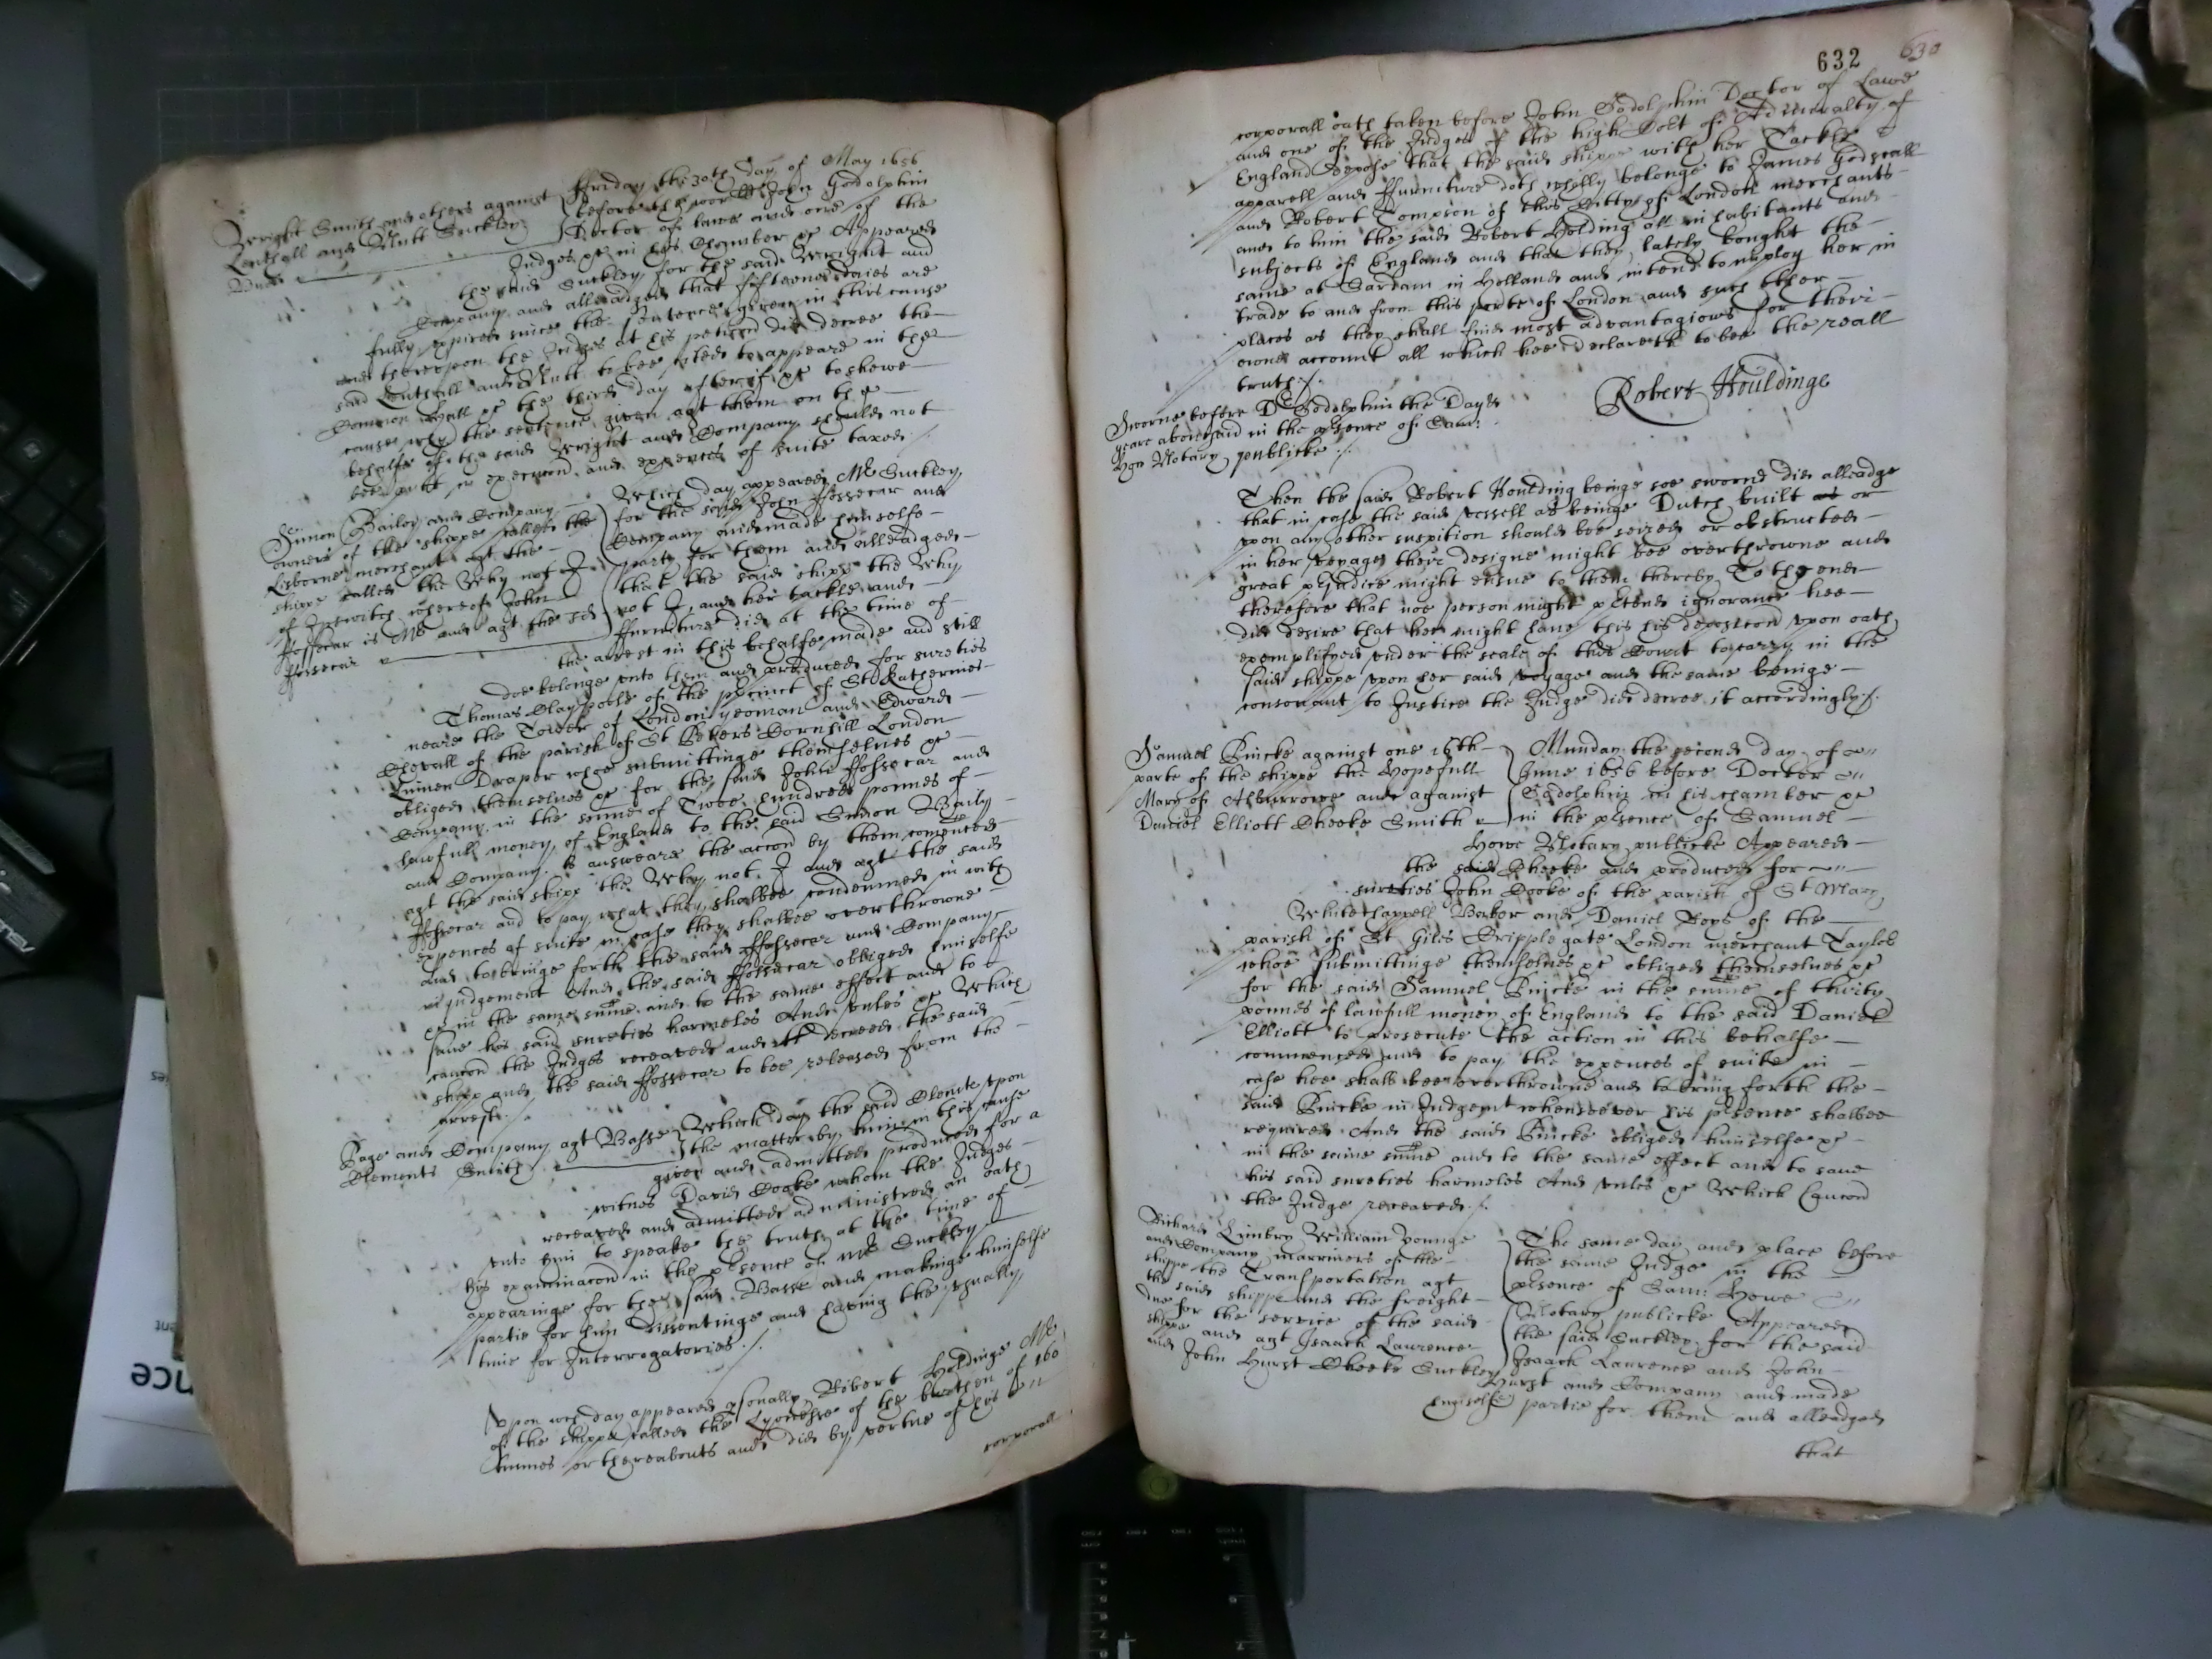 Wright Smith and others against
Lenthall and Nutt Suckley
ffriday the 30th day of May 1656
before the worll John Godolphin
Doctor of lawe and one of the
Judges &c in his Chamber &c Appeared
the said Suckley for the said Wright and
Company and alleadged that fifteene daies are
fully expired since the sentence given in this cause
and thereupon the Judges at his peticon did decree the
said Lenthall and Nutt to bee cited to appeare in the
Common Hall &c the third day after if &c to shewe
cause why the sentence given agt them on the
behalfe of the said Wright and Company should not
bee putt in execucon and expences of suite taxed ./.
Simon Bailey and Company
owners of the shippe called the
Lisborne merchant agt the
shippe called the Why not I
of Ipswitch whereof John
ffossecar is Mr and agt the sd
ffossecar
Which day appeared Mr Suckley
for the said John ffossecar and
Company and made himselfe
party for them and alleadged
that the said shipp the Why
not I, and her tackle and
ffurniture did at the time of
the arrest in this behalfe made and still
doe belonge unto them and produced for sureties
Thomas Claypoole of the precinct of St Katherines
neare the Tower of London yeoman and Edward
of the parish of St Peters Cornhill London
Linnen Draper whoe submittinge themselves &c
obliged themselves &c for the said John ffossecar and
Company in the summe of Twoe hundred pounds of
lawfull money of England to the said Simon Baily
and Company to answeare the accon by them comenced
agt the said shipp the Why not I and agt the said
ffossecar and to pay what they shalbee condemned in with
expences of suite in case they shalbee overthrowne
and to bringe forth the said ffossecar and Company
in judgement And the said ffossecar obliged himselfe
&c in the same summe and to the same effect and to
save his said sureties harmeles And unles &c Which
caucon the Judges receaved and decreed the said
shipp and the said ffossecar to bee released from the
arrest ./.
Page and Company agt Basse
Clements Smith
Which day the said Clements upon
the matter by him in this cause
given and admitted produced for a
witnes David Cooke whom the Judges
receaved and admitted administred an oath
unto him to speake the truth at the time of
his examinacon in the presence of Mr Suckley
appearinge for the said Basse and makinge himselfe
partie for him dissentinge and having the usually
time for Interrogatories ./.
Upon wch day appeared personally Robert Holdinge Mr
of the shippe called the Lyonesse of the burthen of 160
tunnes or thereabouts and did by vertue of his
corporall
632 630
corporall oath taken before John Godolphin Doctor of Lawe
and one of the Judges of the high Cort of Admiralty of
England depose that the said shippe with her Tackle
apparell and ffurniture doth wholly belonge to James Godscall
and Robert Tompson of this Citty of London merchants
and to him the said Robert Holding all inhabitants and
subjects of England and that they lately bought the
same at Sardam in Holland and intend to imploy her in
trade to and from this porte of London and such other
places as they shall find most advantagious for their
owne account all which hee declareth to bee the reall
truth ./.
Robert Houldinge
Sworne before Dr Godolphin the Day &
yeare abovesaid in the presence of Sam:
Notary publicke ./.
Then the said Robert Houlding beinge soe sworne did alleadge
that in case the said vessell as beinge Dutch built as or
upon any other suspition should bee seized or obstructed
in her voyage their designe might bee overthrowne and
great prejudice might ensue to them thereby To the end
therefore that noe person might pretend ignorance hee
did desire that hee might have this his deposicon upon oath
exemplifyed under the seale of this Court to carry in the
said shippe upon her said voyage and the same beinge
consonant to Justice the Judge did decree it accordingly ./.
Samuel Pincke against one 16th
parte of the shippe the Hopefull
Mary of Alburrowe and against
Daniel Elliott Cheeke Smith
Munday the second day of
June 1656 before Doctor
Godolphin in his chamber &c
in the presence of Samuel
Howe Notary publicke Appeared
the said Cheeke and produced for
sureties John Cooke of the parish of St Mary
White Chappell Barber and Daniel Boys of the
parish of St Giles Cripplegate London merchant Taylor
whoe submittinge themselves &c obliged themselves &c
for the said Samuel Pincke in the summe of thirty
pounds of lawfull money of England to the said Daniel
Elliott to prosecute the action in this behalfe
commenced and to pay the expences of suite in
case hee shall bee overthrowne and to bring forth the
said Pincke in Judgemt whensoever his presence shalbee
required And the said Pincke obliged himselfe &c
in the same summe and to the same effect and to save
his said sureties harmeles And unles &c Which Caucon
the Judge receaved ./.
Richard Limbry William younge
and Company marriners of the
shippe the Transportation agt
the said shippe and the freight
due for the service of the said
shippe and agt Isaack Lawrence
and John Hurst Cheeke Suckley
The same day and place before
the same Judge in the
presence of Sam: Howe
Notary publicke Appeared
the said Suckley for the said
Isaack Laurence and John
Hurst and Company and made
himselfe partie for them and alleadged
that